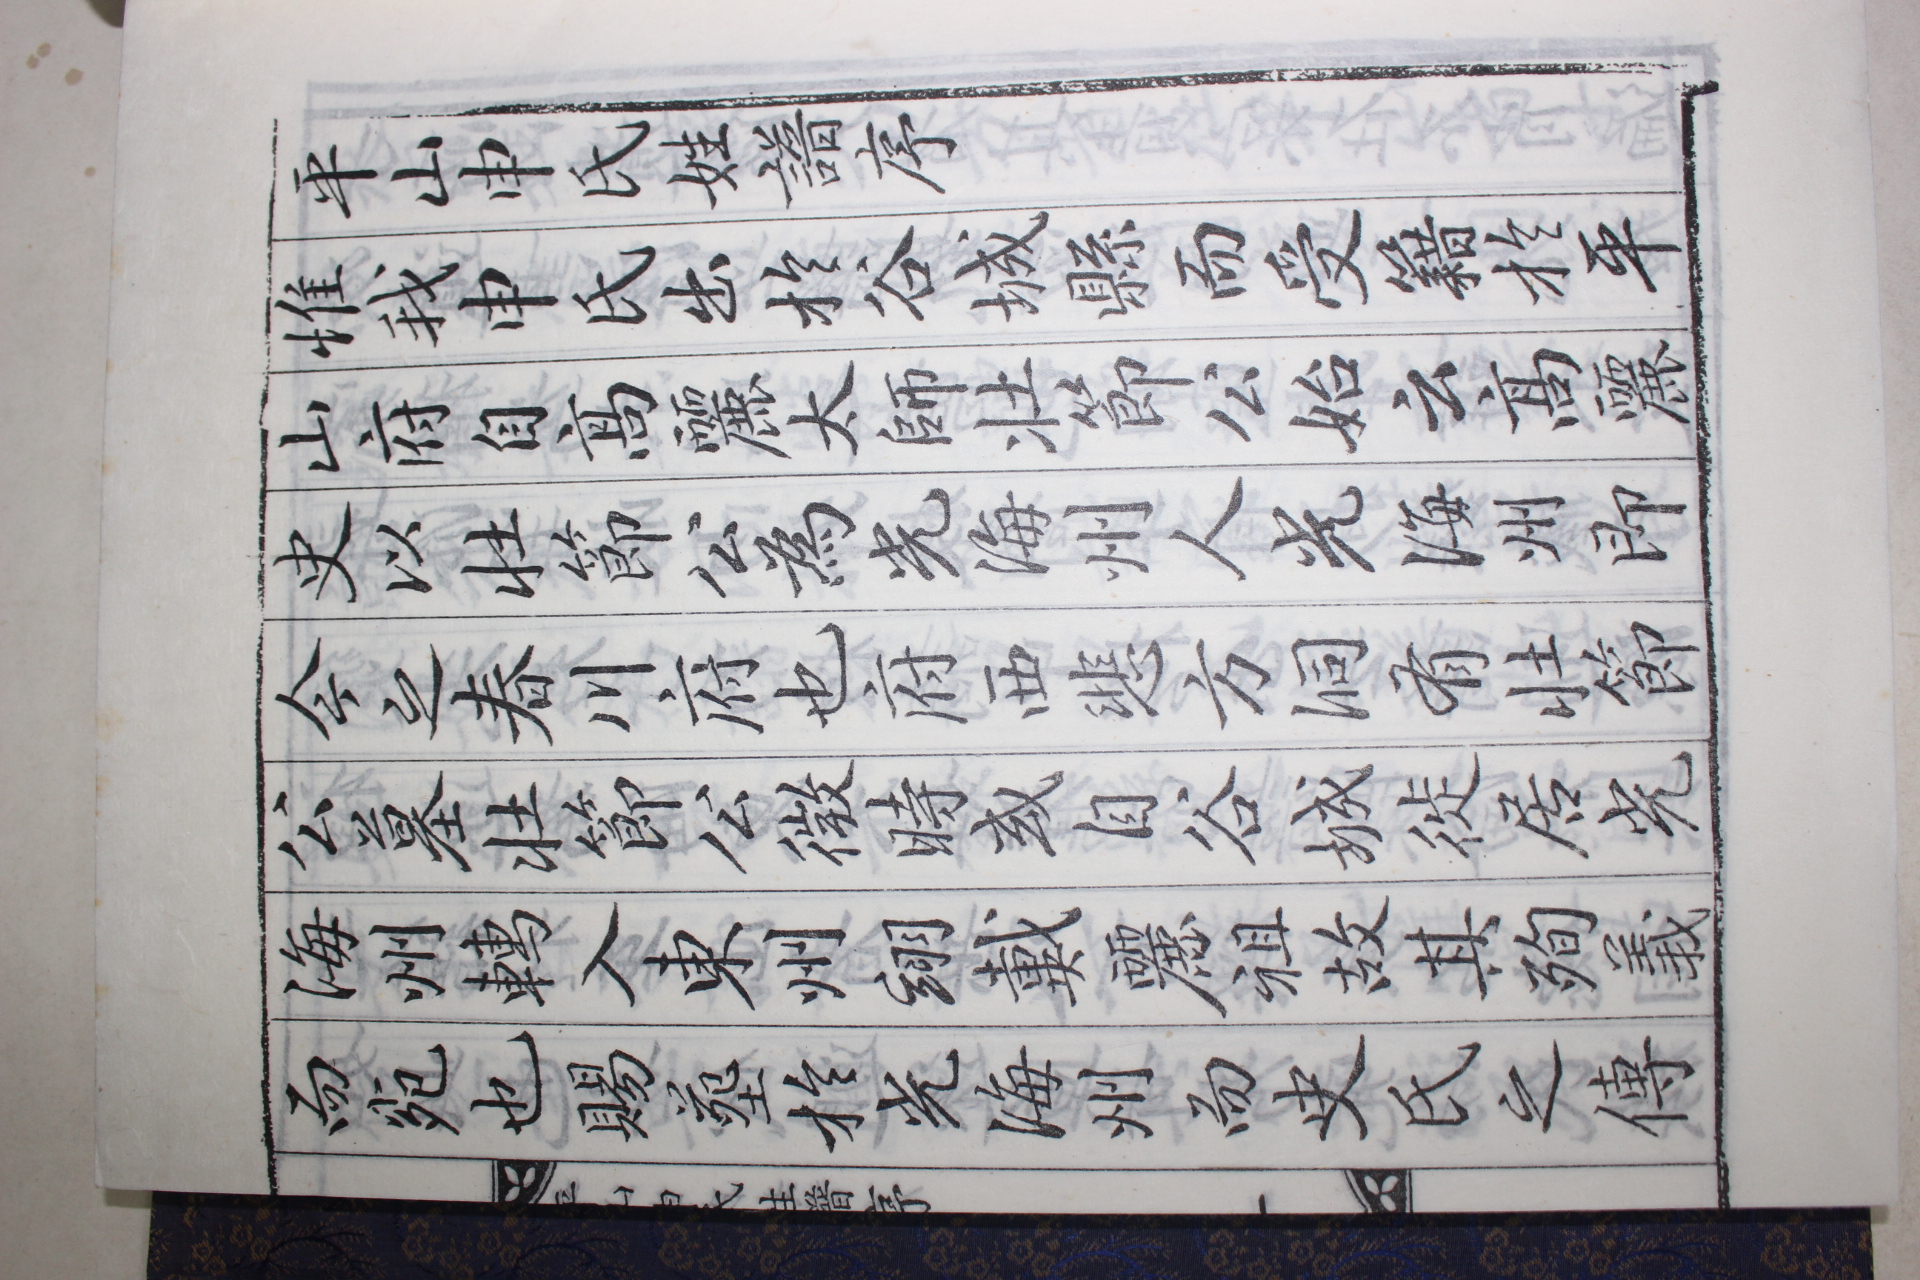 平山申氏姓譜序
惟我申氏出於谷城縣而受籍於平
山府自高麗太師壯節公始云高麗
史以壯節公爲光海州人光海州即
今之春川府也府西悲方洞有壯節
公墓壯節公微時或自谷城徙居光
海州轉入東州翊戴麗祖故其殉義
而死也賜塟於光海州而史氏之傳
平山申氏姓譜序 一